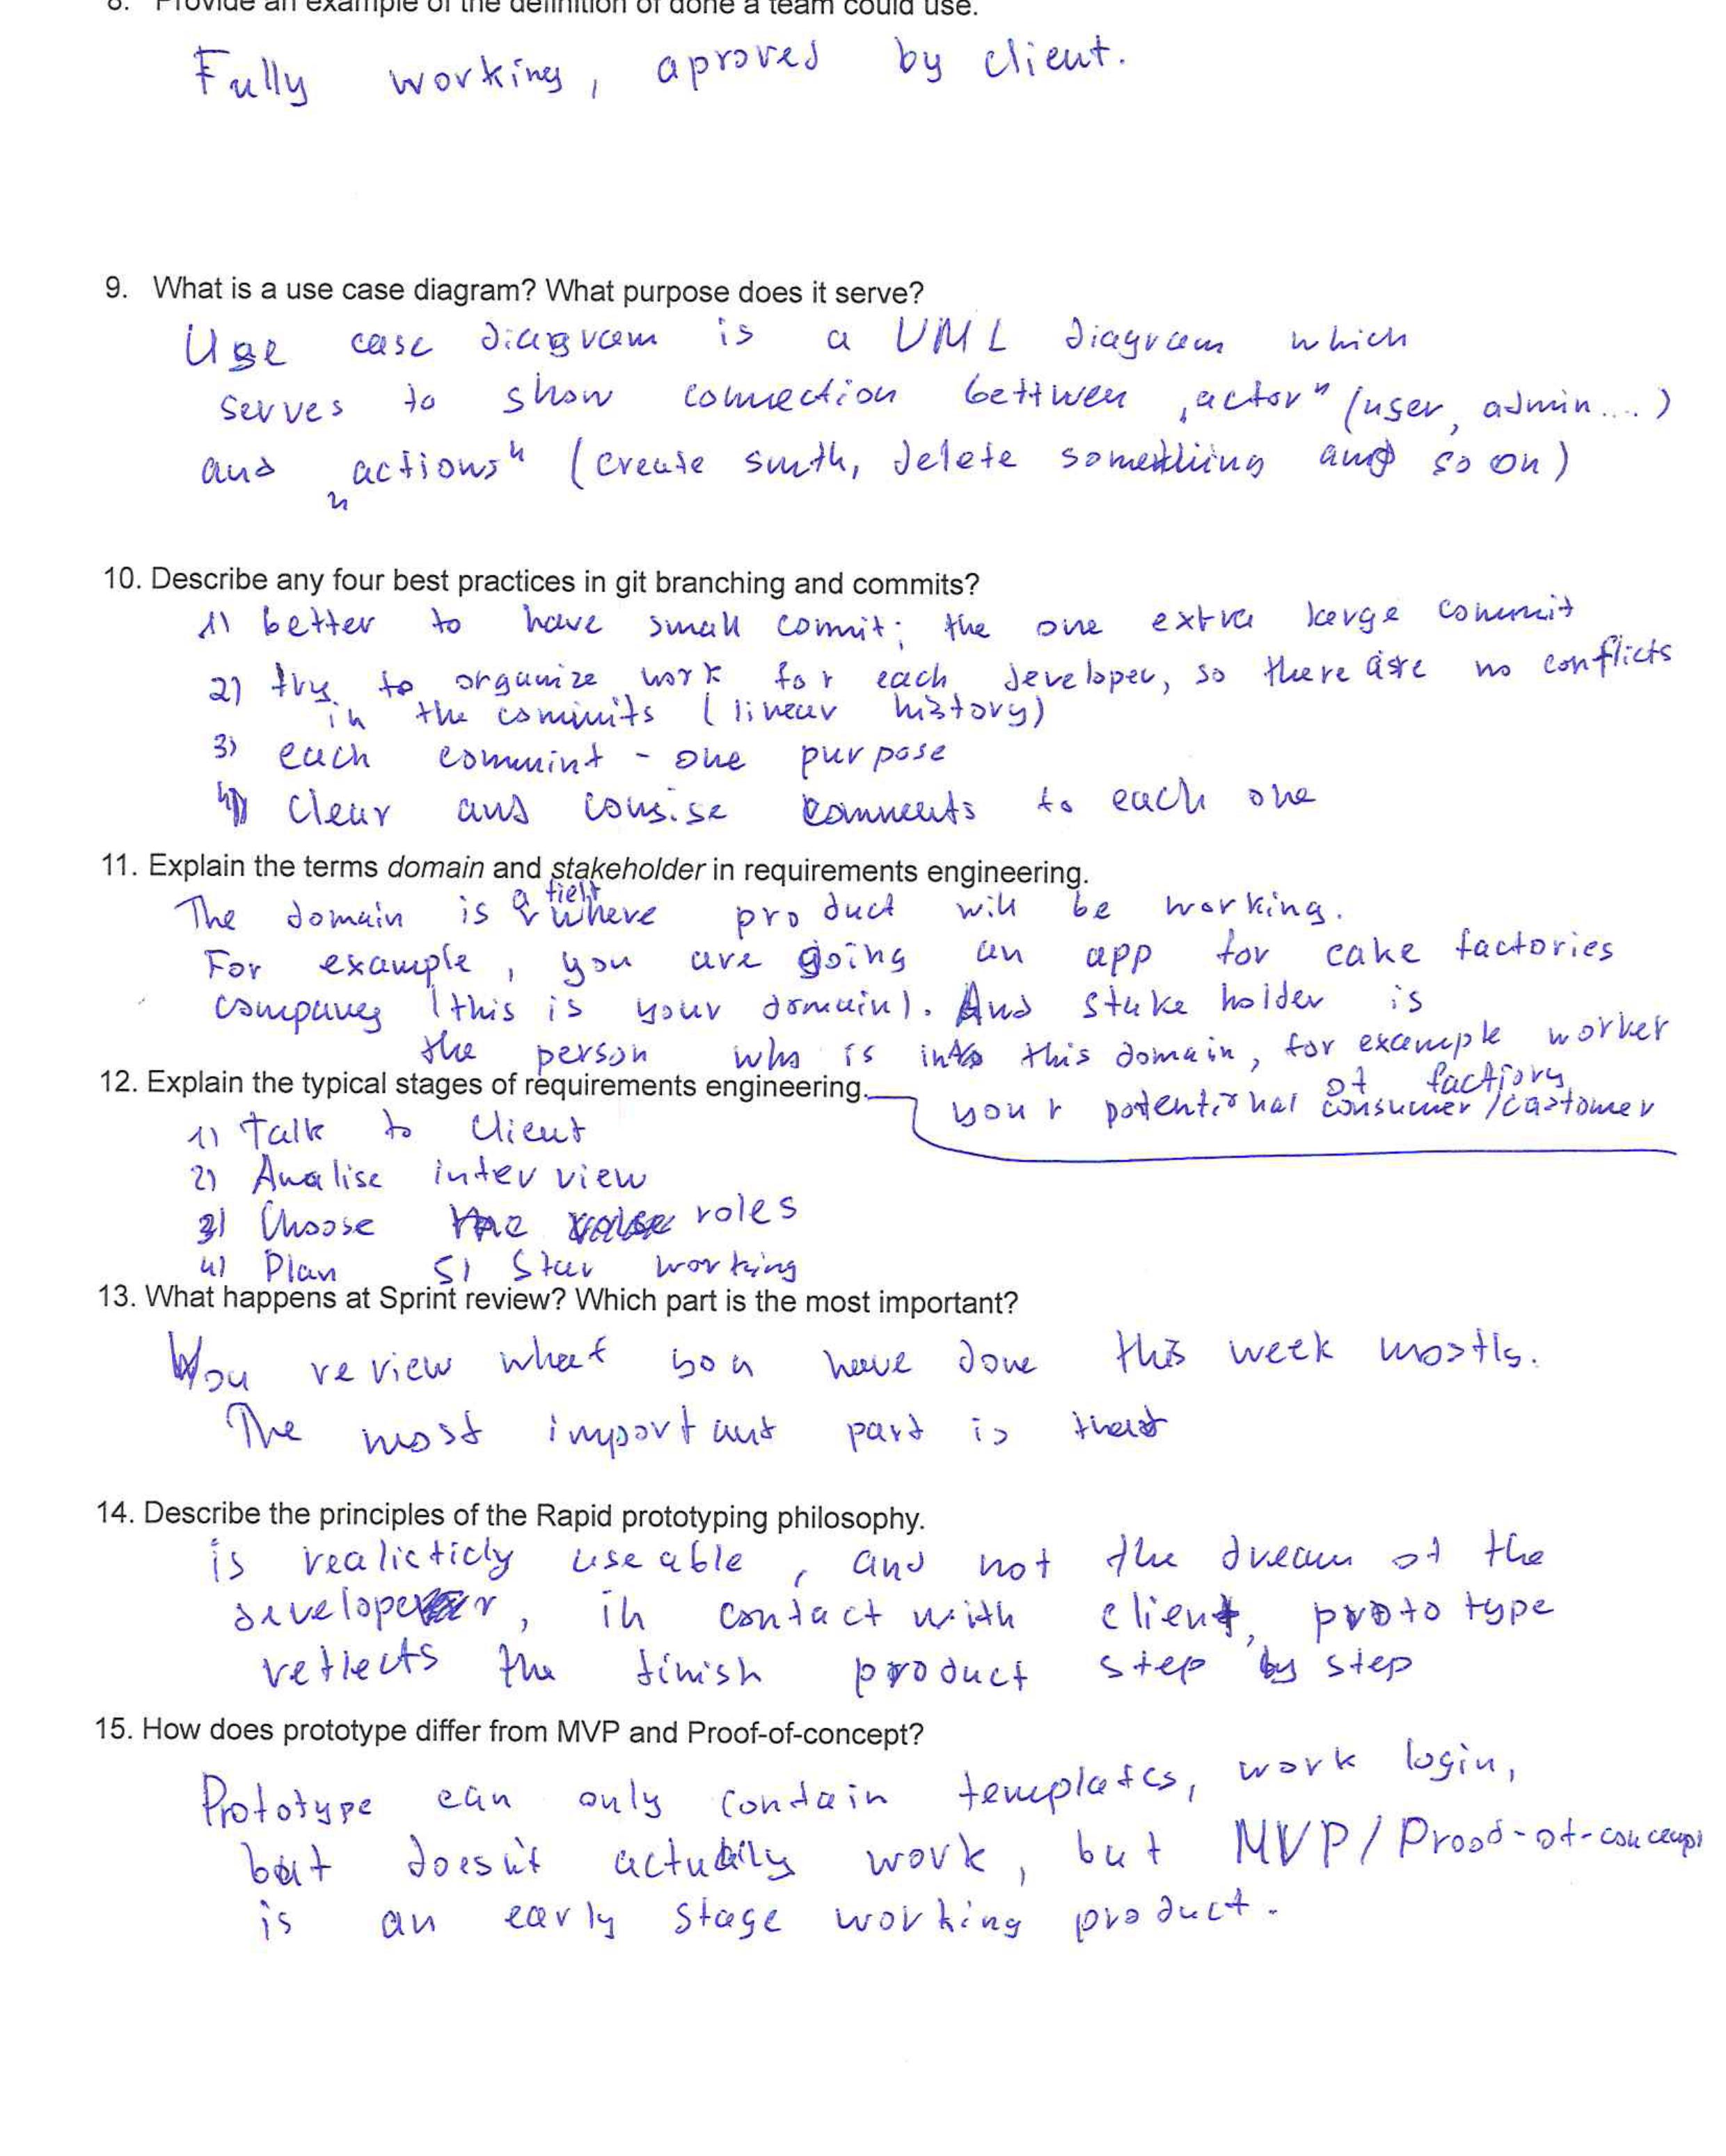 8. Provide an example of the definition of done a team could use.
Fully working, aproved by client.
9. What is a use case diagram? What purpose does it serve?
Use case diagram is a UML diagram which
serves to show connection bettwen „actor" (user, admin....)
and „actions" (create smth, delete something and so on)
10. Describe any four best practices in git branching and commits?
1) better to have small commit; the one extra large commit
2) try to organize work for each developer, so there are no conflicts
in the commits (linear history)
3) each commint - one purpose
4) Clear and consise comments to each one
11. Explain the terms domain and stakeholder in requirements engineering.
The domain is a field where product will be working.
For example, you are going an app for cake factories
company (this is your domain). And stake holder is
the person who is into this domain, for example worker
of factiory,
12. Explain the typical stages of requirements engineering.
your potentional consumer/castomer
1) Talk to Client
2) Analise interview
3) Choose the roles
4) Plan 5) Star working
13. What happens at Sprint review? Which part is the most important?
You review what you have done this week mostly.
The most important part is that
14. Describe the principles of the Rapid prototyping philosophy.
is realicticly useable, and not the dream of the
developer, in contact with client, prototype
reflects the finish product step by step
15. How does prototype differ from MVP and Proof-of-concept?
Prototype can only contain templates, work login,
but doesn't actually work, but MVP/Proof-of-concept
is an early stage working product.